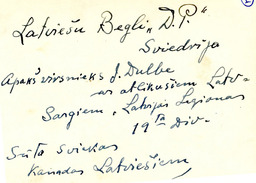 Latviešu Begli „D.P."
Sviedrija
Apakšvirsnieks J. Dulbe
ar atlikušiem Latv-
Sargiem, Latvijas Legionas
19 ta Div-
Sūta sveicas
Kanadas Latviešiem,